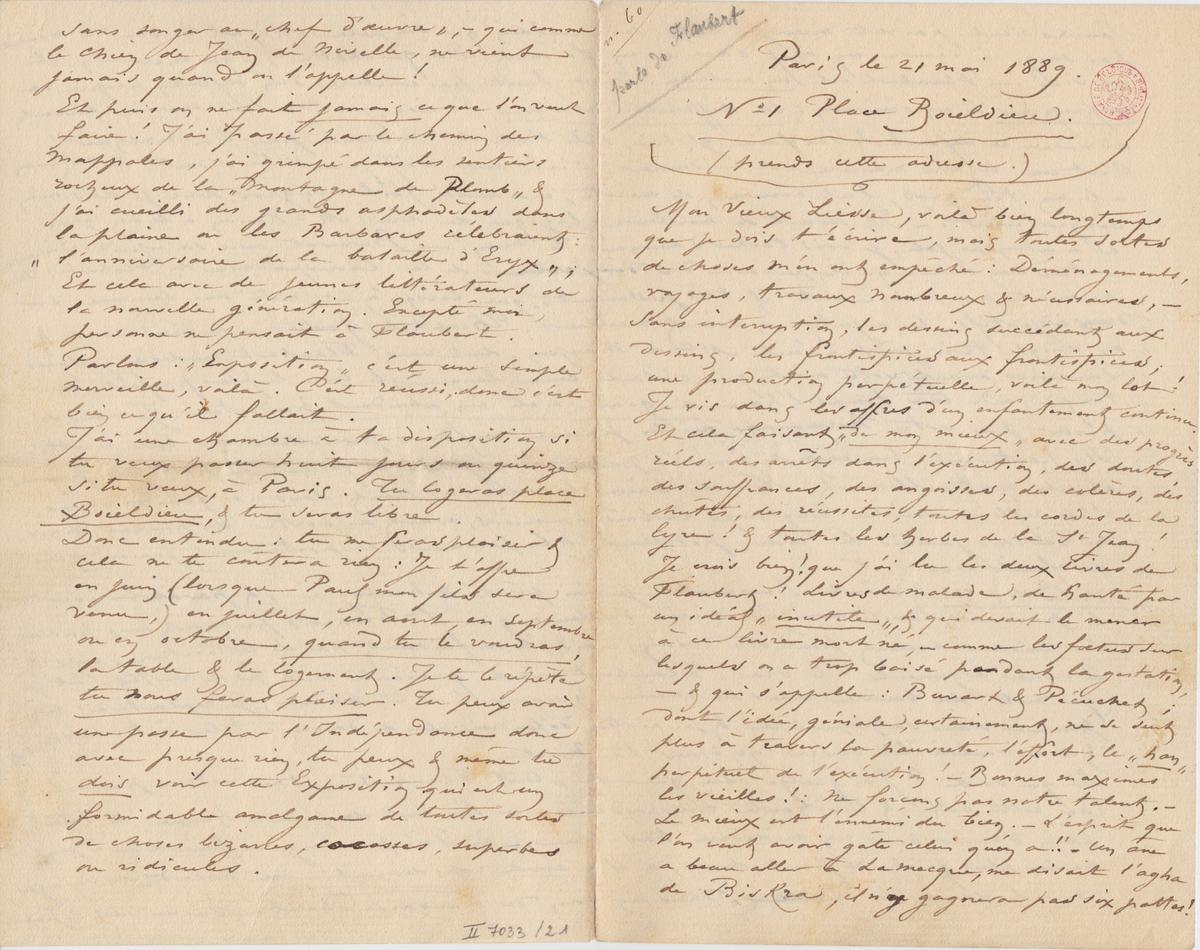 n. 60
parle de Flaubert
Paris le 21 mai 1889.
Nº 1 Place Boieldieu.
(prends cette adresse.)
Mon Vieux Liesse, voilà bien longtemps
que je dois t'écrire, mais toutes sortes
de choses m'en ont empêché : Déménagements,
voyages, travaux nombreux & nécessaires, —
sans interruption, les dessins succédant aux
dessins, les frontispices aux frontispices ;
une production perpétuelle, voilà mon lot !
Je vis dans les affres d'un enfantement continu.
Et cela faisant „de mon mieux „ avec des progrès
réels, des arrêts dans l'exécution, des doutes,
des souffrances, des angoisses, des colères, des
chutes, des réussites, toutes les cordes de la
lyre ! & toutes les herbes de la St Jean !
Je crois bien ! que j'ai lu les deux livres de
Flaubert ! livres de malade, de hanté par
un idéal „ inutile „, & qui devait le mener
à ce livre mort né, — comme les foetus sur
lesquels on a trop baisé pendant la gestation,
— & qui s'appelle : Buvart & Pécuchet !
dont l'idée, géniale, certainement, ne se sent
plus à travers la pauvreté, l'effort, le „han„
perpétuel de l'exécution ! — Bonnes maximes
les vieilles ! : Ne forçons pas notre talent. —
Le mieux est l'ennemi du bien. — L'esprit que
l'on veut avoir gâte celui qu'on a !! — Un âne
a beau aller à La Mecque, me disait l'agha
de Biskra, il n'y gagnera pas six pattes !
sans songer au „chef d'œuvre„, — qui comme
le chien de Jean de Nivelle, ne vient
jamais quand on l'appelle !
Et puis on ne fait jamais ce que l'on veut
faire ! J'ai passé par le chemin des
Mappales, j'ai grimpé dans les sentiers
rocheux de la „Montagne de Plomb„ &
j'ai cueilli des grands asphodèles dans
la plaine ou les Barbares célébraient :
„ l'anniversaire de la bataille d'Eryx „ ;
Et cela avec de jeunes littérateurs de
la nouvelle génération. Excepté moi,
personne ne pensait à Flaubert.
Parlons : „Exposition„ c'est une simple
merveille, voilà. C'est réussi, donc c'est
bien ce qu'il fallait.
J'ai une chambre à ta disposition si
tu veux passer huit jours ou quinze
si tu veux, à Paris. Tu logeras place
Boieldieu, & tu seras libre.
Donc entendu : tu me feras plaisir &
cela ne te coûtera rien : Je t'offre
en juin (lorsque Paul mon fils sera
venu,) en juillet, en août, en septembre
ou en octobre, quand tu le voudras,
la table & le logement. Je te le répète
tu nous feras plaisir. Tu peux avoir
une passe par l'Indépendance donc
avec presque rien, tu peux & même tu
dois voir cette Exposition qui est un
formidable amalgame de toutes sortes
de choses bizarres, cocasses, superbes
ou ridicules.
II 7033 / 21